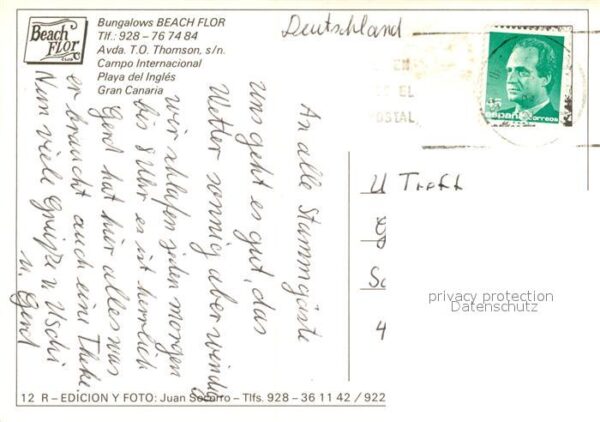 Beach
FloR
CLUB
Bungalows BEACH FLOR
Tlf.: 928 - 76 74 84
Avda. T.O. Thomson, s/n.
Campo Internacional
Playa del Inglés
Gran Canaria
Deutschland
45
ESPAÑA correos
An alle Stammgäste
Uns geht es gut, das
Wetter sonnig aber windig
wir schlafen jeden morgen
bis 8 Uhr es ist herrlich
Gerd hat hier alles was
er braucht auch eine Theke
Nun viele Grüße v. Uschi
u. Gerd
U Treff
4
privacy protection
Datenschutz
12 R – EDICION Y FOTO: Juan Socorro – Tlfs. 928 - 36 11 42 / 922